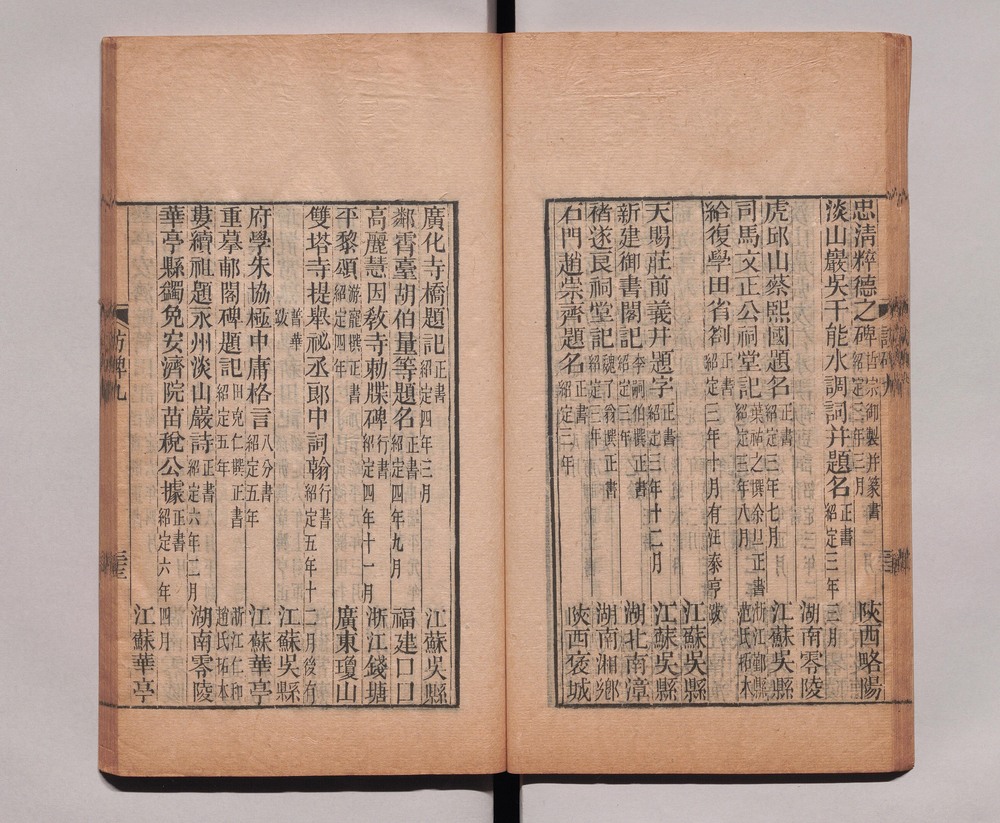 忠清粹德之碑 哲宗御製并篆書 紹定三年三月 陝西略陽
淡山巖吳千能水調詞并題名 正書 紹定三年三月 湖南零陵
虎邱山蔡熙國題名 正書 紹定三年七月 江蘇吳縣
司馬文正公祠堂記 葉祐之撰余旦正書 紹定三年八月 浙江鄞縣 范氏拓本
給復學田省劄 正書 紹定三年十月有汪泰亨跋 江蘇吳縣
天賜莊前義井題字 正書 紹定三年十二月 江蘇吳縣
新建御書閣記 李嗣伯撰正書 紹定三年 湖北南漳
褚遂良祠堂記 魏了翁撰正書 紹定三年 湖南湘鄉
石門趙崇齊題名 正書 紹定三年 陝西褒城
廣化寺橋題記 正書 紹定四年三月 江蘇吳縣
鄰霄臺胡伯量等題名 正書 紹定四年九月 福建口口
高麗慧因教寺勅牒碑 行書 紹定四年十一月 浙江錢塘
平黎頌 游寵撰正書 紹定四年 廣東瓊山
雙塔寺提舉祕丞郎中詞翰 行書 紹定五年十二月後有
普華跋 江蘇吳縣
府學朱協極中庸格言 八分書 紹定五年 江蘇華亭
重摹郙閣碑題記 田克仁撰正書 紹定五年 浙江仁和 趙氏拓本
婁續祖題永州淡山巖詩 正書 紹定六年二月 湖南零陵
華亭縣蠲免安濟院苗稅公據 正書 紹定六年四月 江蘇華亭
訪碑九